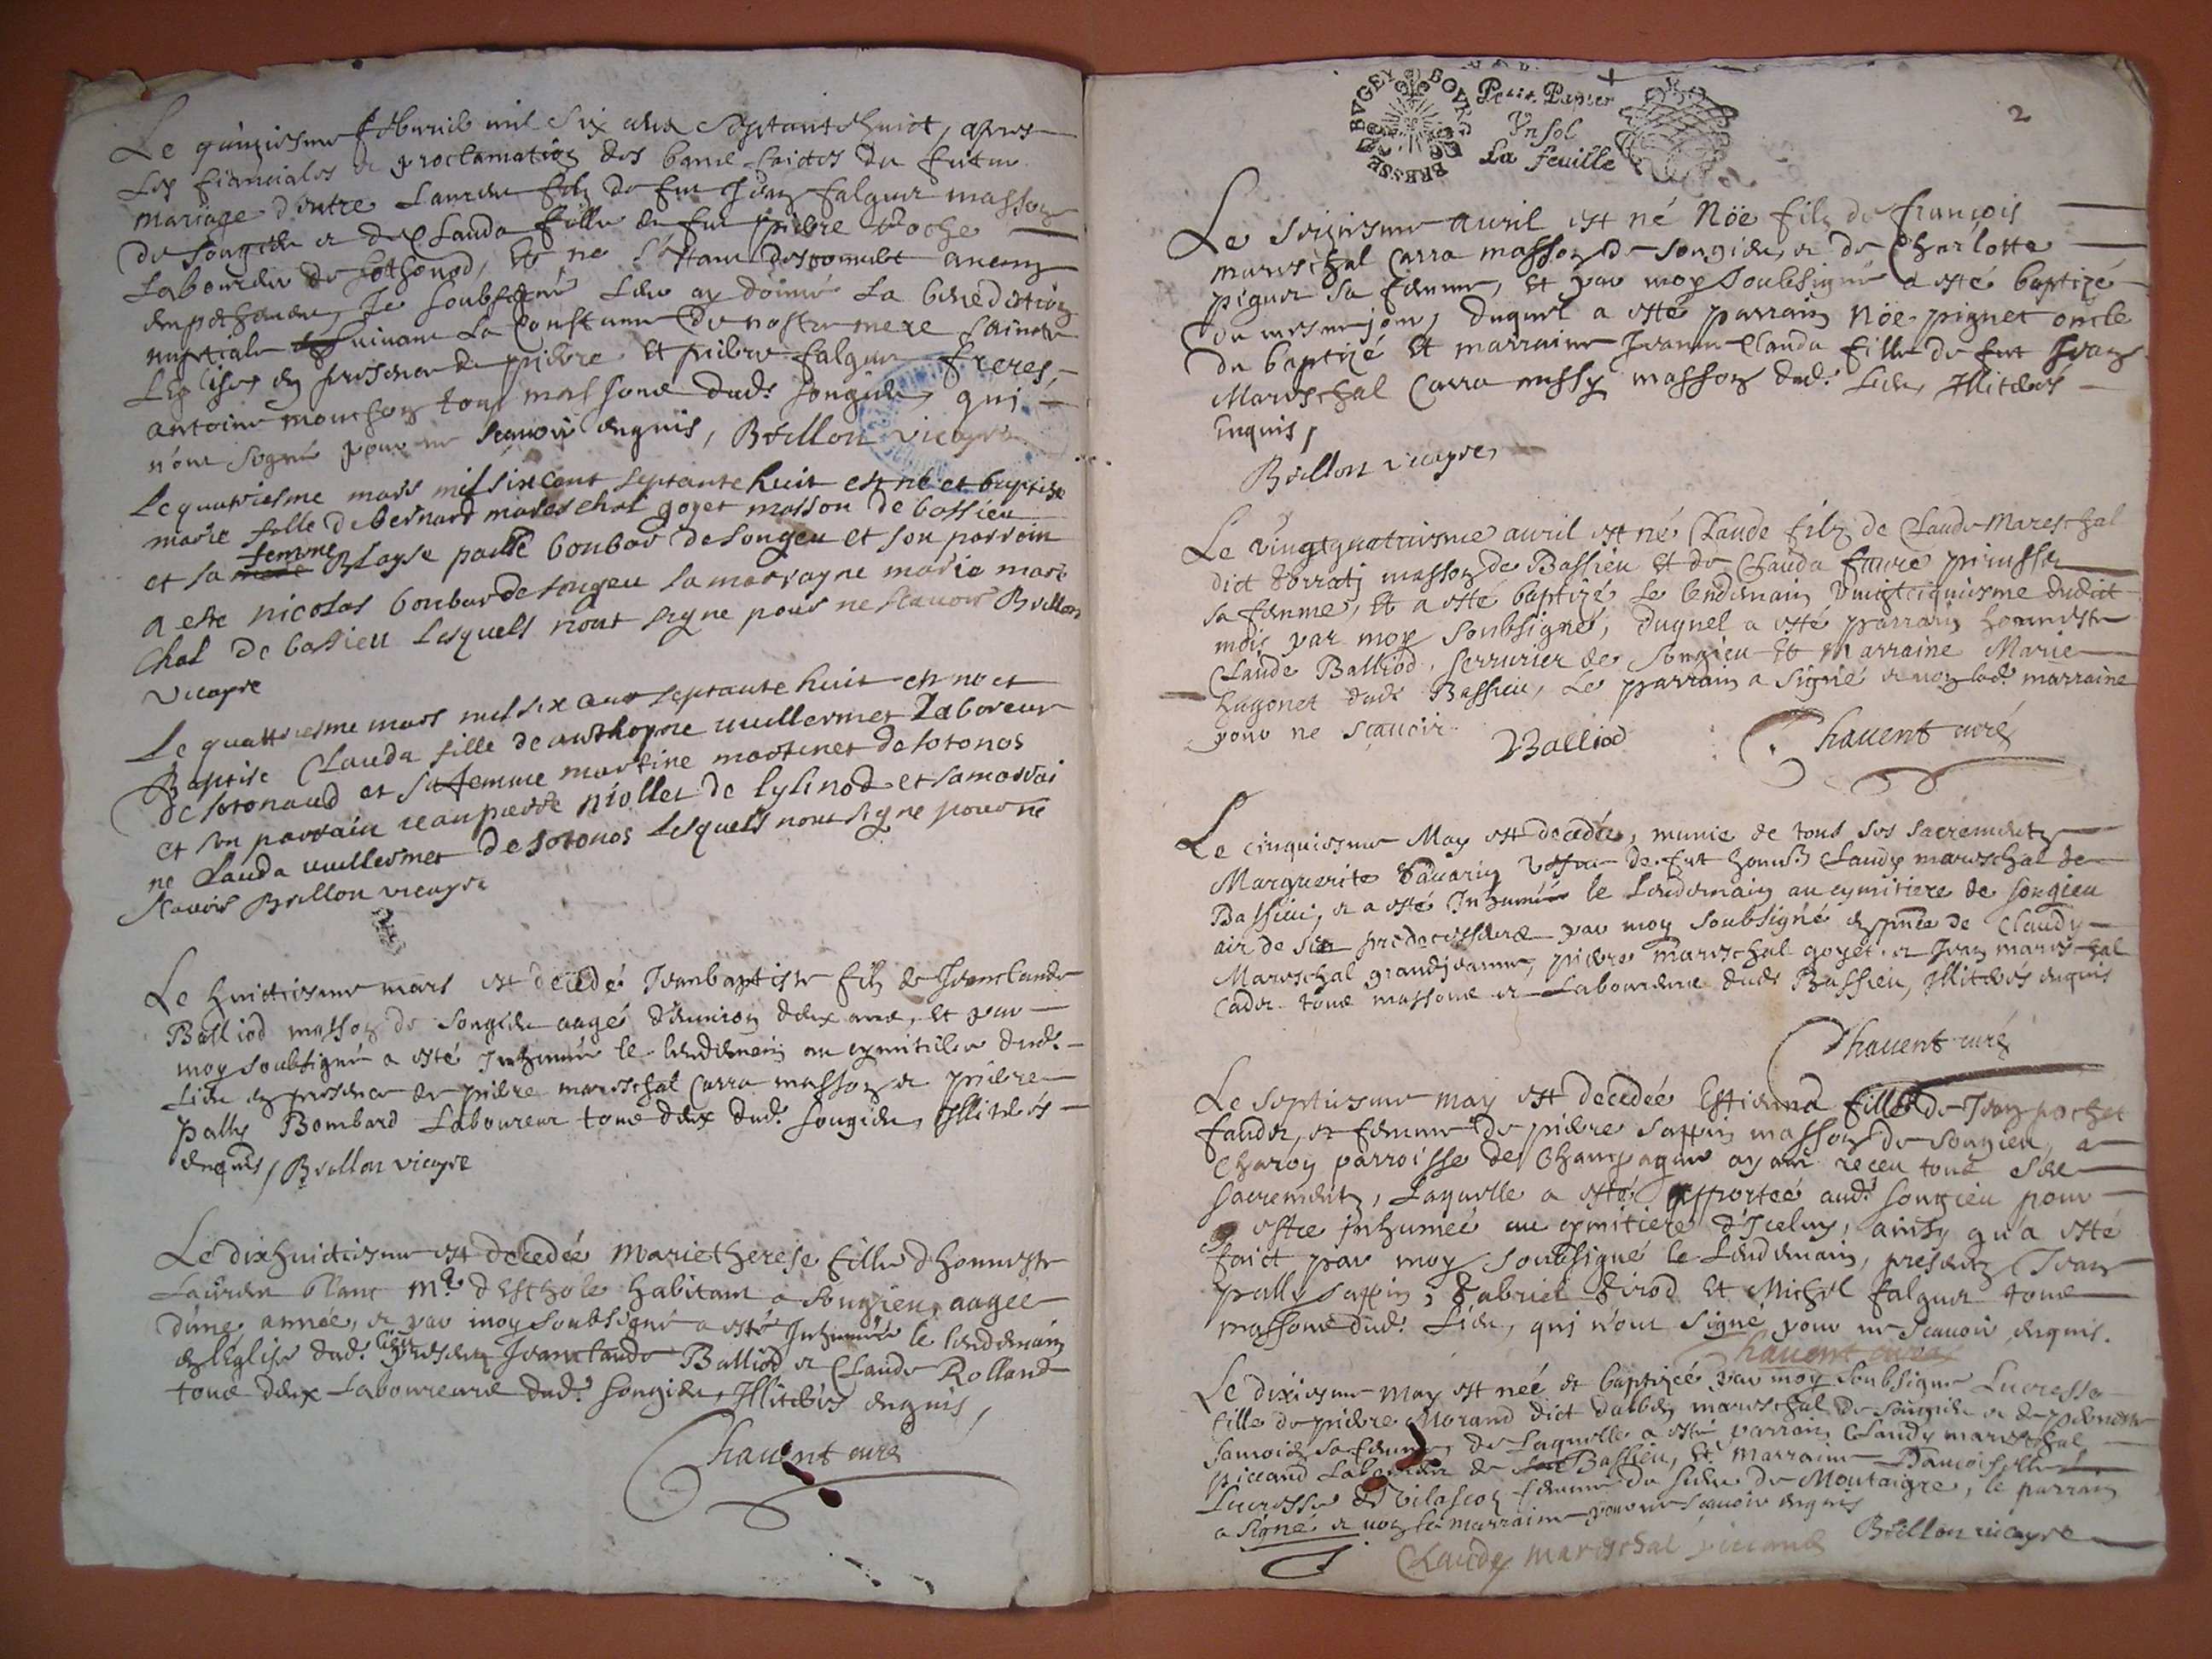 Le quinziesme febvrier mil six cens septante huict, apres
Les fiancailes et proclamation des bans faictes du futur
mariage d'entre Laurent filz de feu Jean falquet masson
de Songieu et de Clauda fille de feu pierre
Laboureur de Lothonod, Et ne s'estant descouvert aucung
empechement, Je soubsigné Leur ay donné La benediction
nuptiale suivant La Coustume de nostre mere saincte
Leglise, en presence de pierre Et pierre falquet freres,
antoine mouchon tous massons dud. songieu, qui
n'ont signé pour ne scavoir enquis, Brillon vicayre
Le quatriesme mars mil six cent septante huit est né et baptisé
marie fille de bernard mareschal goyet masson de bassieu
et sa femme Blayse bonbar de songeu et son parrain
a este nicolas bonbar de songeu sa marrayne marie mares
chal de bassieu Lesquels n'ont signe pour ne scavoir Brillon
vicayre
Le quattriesme mars mil six cent septante huit est né et
Baptise Clauda fille de anthoyne vuillermet Laboreur
de sotonaud et sa femme martine martinet de sotonos
et son parrain jean pierre niollet de lylinod et sa marrai
ne Clauda vuillermet de sotonos Lesquels n'ont signe pour ne
scavoir Brillon vicayre
Le huictiesme mars est decedé Jeanbaptiste filz de Jeanclaude
Balliod masson de songieu aagé d'environ deux ans, Et par
moy soubsigné a esté Inhumé le lendemain au cymitiere dud.
Lieu en presence de pierre mareschal Carra masson et pierre
pally Bombard Laboureur tous deux dud. songieu, Illiterés
enquis, Brillon vicayre
Le dixhuictiesme est decedée Marietherese fille d'honneste
Laurent blanc Mr. d'Eschole habitant a songieu, aagee
d'une année, et par moy soubsigné a esté Inhumée le lendemain
en l'Eglise dud. lieu presents Jeanclaude Balliod et Claude Rolland
tous deux Laboureurs dud. songieu, Illiterés enquis,
Chavent curé
BRESSE BUGEY BOURG
Petit Papier
Un sol
La feuille
2
Le seiziesme avril est né Nöe filz de françois
mareschal Carra masson de songieu, et de Charlotte
piguet sa femme, Et par moy soubsigné a esté baptizé
du mesme jour, duquel a esté parrain Nöe piguet oncle
du baptizé Et marraine Jeanne Clauda fille de feu Jean
Mareschal Carra aussy masson dud. Lieu, Illiterés
Enquis,
Brillon vicayre,
Le vingtquatriesme avril est né Claude filz de Claude Mareschal
dict masson de Bassieu Et de Clauda
sa femme, Et a esté baptizé Le lendemain vingtcinquiesme dudict
mois par moy soubsigné, duquel a esté parrain honneste
Claude Balliod, serrurier de songieu Et Marraine Marie
hugonet dud. Bassieu, Le parrain a signé et non lad. marraine
pour ne scavoir. Balliod Chavent curé
Le cinquiesme May est decedée, munie de tous ses sacrements
Marguerite vefve de feu honn. Claudy mareschal de
Bassieu, et a esté Inhumée le lendemain au cymitiere de songieu
de ses predecesseurs par moy soubsigné en pnce de Claudy
Mareschal grandjeanne, pierre mareschal goyet et Jean mareschal
Cadet tous massons et Laboureurs dud. Bassieu, Illiterés enquis
Chavent curé
Le septiesme may est decedée Estienna fille de Jean pochet
et femme de pierre sappin masson de songieu, a
Charoy parroisse de Champagne ayant receu tous ses
sacrements, Laquelle a esté apportée aud. songieu pour
estre inhumée au cymitiere d'Iceluy, ainsy qu'a esté
faict par moy soubsigné le lendemain, presents Jean
pally sappin, Gabriel Girod Et Michel falquet tous
massons dud. Lieu, qui n'ont signé pour ne scavoir enquis.
Chavent curé
Le dixiesme May est née et baptizée par moy soubsigné Lucresse
fille de pierre Morand dict mareschal de songieu et de pernette
sa femme, de Laquelle a esté parrain Claudy mareschal
piccand Laboureur de Bassieu, Et Marraine Damoiselle
Lucresse femme du sieur de Montaigre, le parrain
a signé et non la marraine pour ne scavoir enquis
Claudy mareschal piccand Brillon vicayre